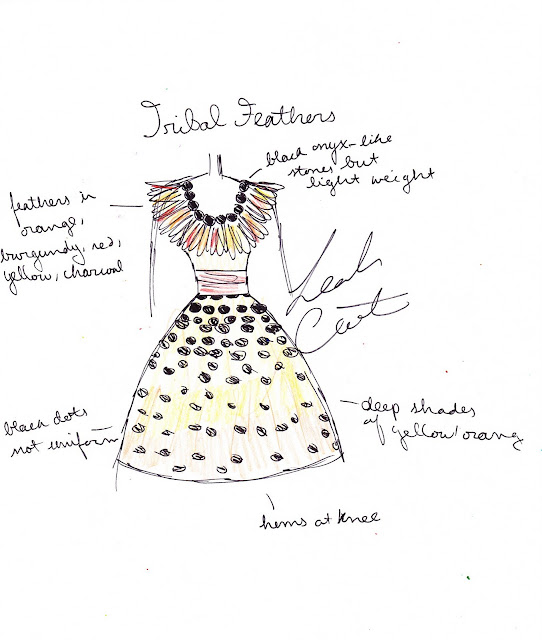 Tribal Feathers
black onyx-like
stones but
light weight
feathers in
orange,
burgundy, red,
yellow, charcoal
Leah
black dots
not uniform
deep shades
of yellow/orang
hems at knee